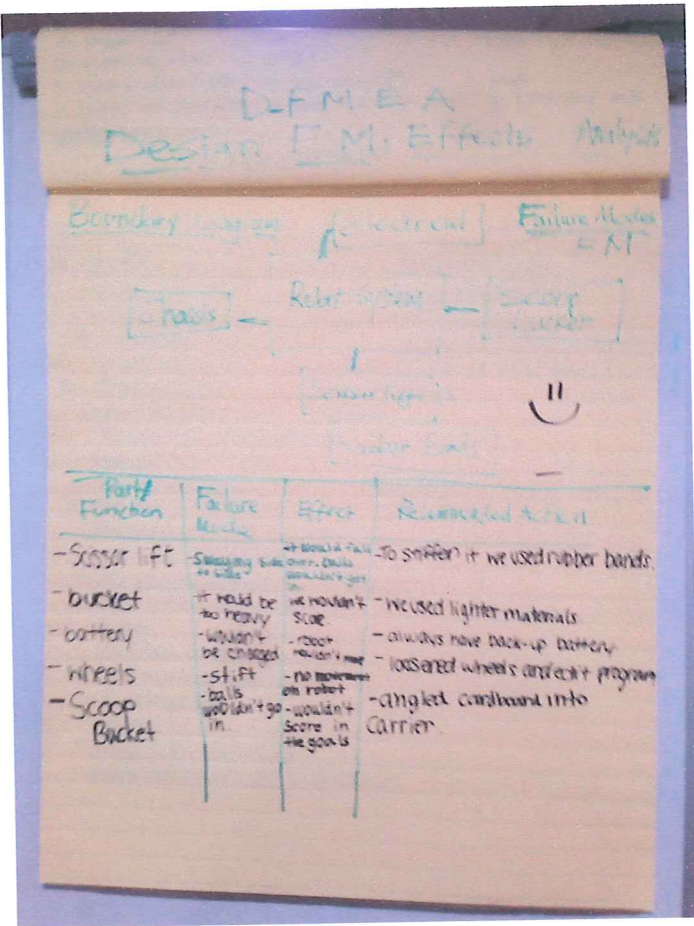 DFMEA
Design F.M. Effects Analysis
Boundary Diagram
Electrical
Failure Modes
= M
Chassis
Robot System
Scoop
Bucket
Scissor lift
Part/
Function
Failure
Mode
Effect
Recommended Action
-Scissor lift
-Swaying side
to side
-it would fall
over. balls
wouldn't get
in
-To stiffen it we used rubber bands.
-bucket
it would be
too heavy
we wouldn't
score
-we used lighter materials
-battery
-wouldn't
be charged
-robot
wouldn't move
-always have back-up battery
-wheels
-stift
-no movement
on robot
-loosened wheels and edit program
-Scoop
Bucket
-balls
wouldn't go
in.
-wouldn't
Score in
the goals
-angled cardboard into
Carrier.